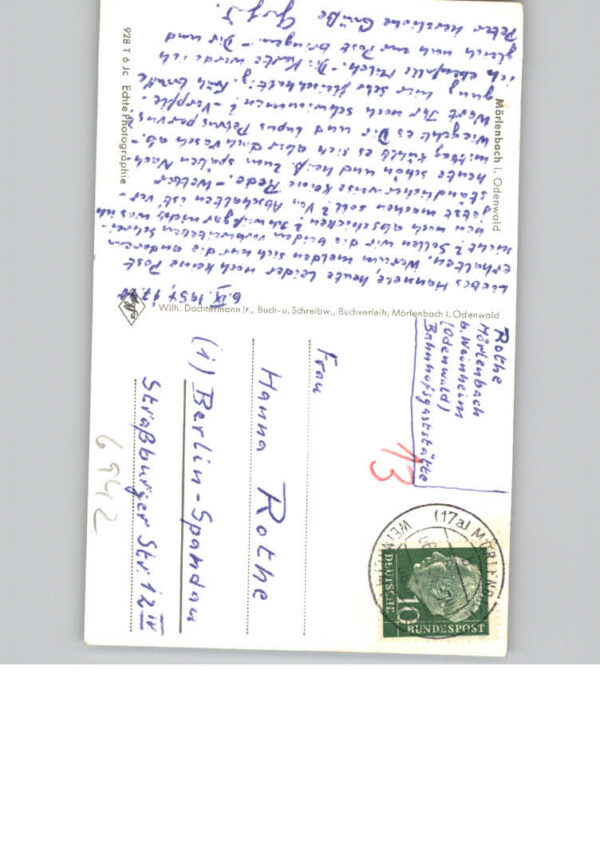 6.IX.1957, 17.00
Liebes Hannele, heute leider noch keine Post
erhalten. Warum melden sich die anderen
nicht? Sollen wir die beiden vorbereiteten Schrei-
ben noch abschicken? Ich weiß gar nicht, was ich
jetzt machen soll? Von Abschalten ist ver-
ständlicherweise keine Rede. - Wetter
heute schön und heiß. Zum späten Nach-
mittag kühlt es sich aber doch rasch ab. -
Wie geht es Dir und Lupus Petrus parvus?
Wart Ihr noch schwimmen? - Verpfle-
gung hier sehr fleischhaltig. Früh trinke
ich ebenfalls Milch. - Die Karte werde ich
gleich noch zur Post bringen. - Dir und
Peter herzliche Grüße
Mörlenbach i. Odenwald
928 T 6 Jc Echte Photographie
Agfa
Wilh. Dachtermann jr., Buch- u. Schreibw., Buchverleih, Mörlenbach i. Odenwald
Rothe
Mörlenbach
b. Weinheim
(Odenwald)
Bahnhofsgaststätte
13
(17a) MÖRLENB
WEINHEIM
10
DEUTSCHE
BUNDESPOST
Frau
Hanna Rothe
(1) Berlin-Spandau
Straßburger Str. 12 IV
6942